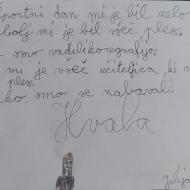 portni dan mi je bil zelo
bolj mi je bil všeč ples.
smo vadili koreografijo.
mi je všeč učiteljica, ki n
ples.
ko smo se zabavali.
Hvala
Julija